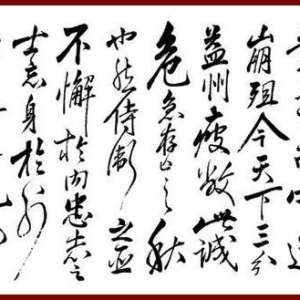 中道
崩殂今天下三分
益州疲敝此誠
危急存亡之秋
也然侍衛之臣
不懈於内忠志之
士忘身於外